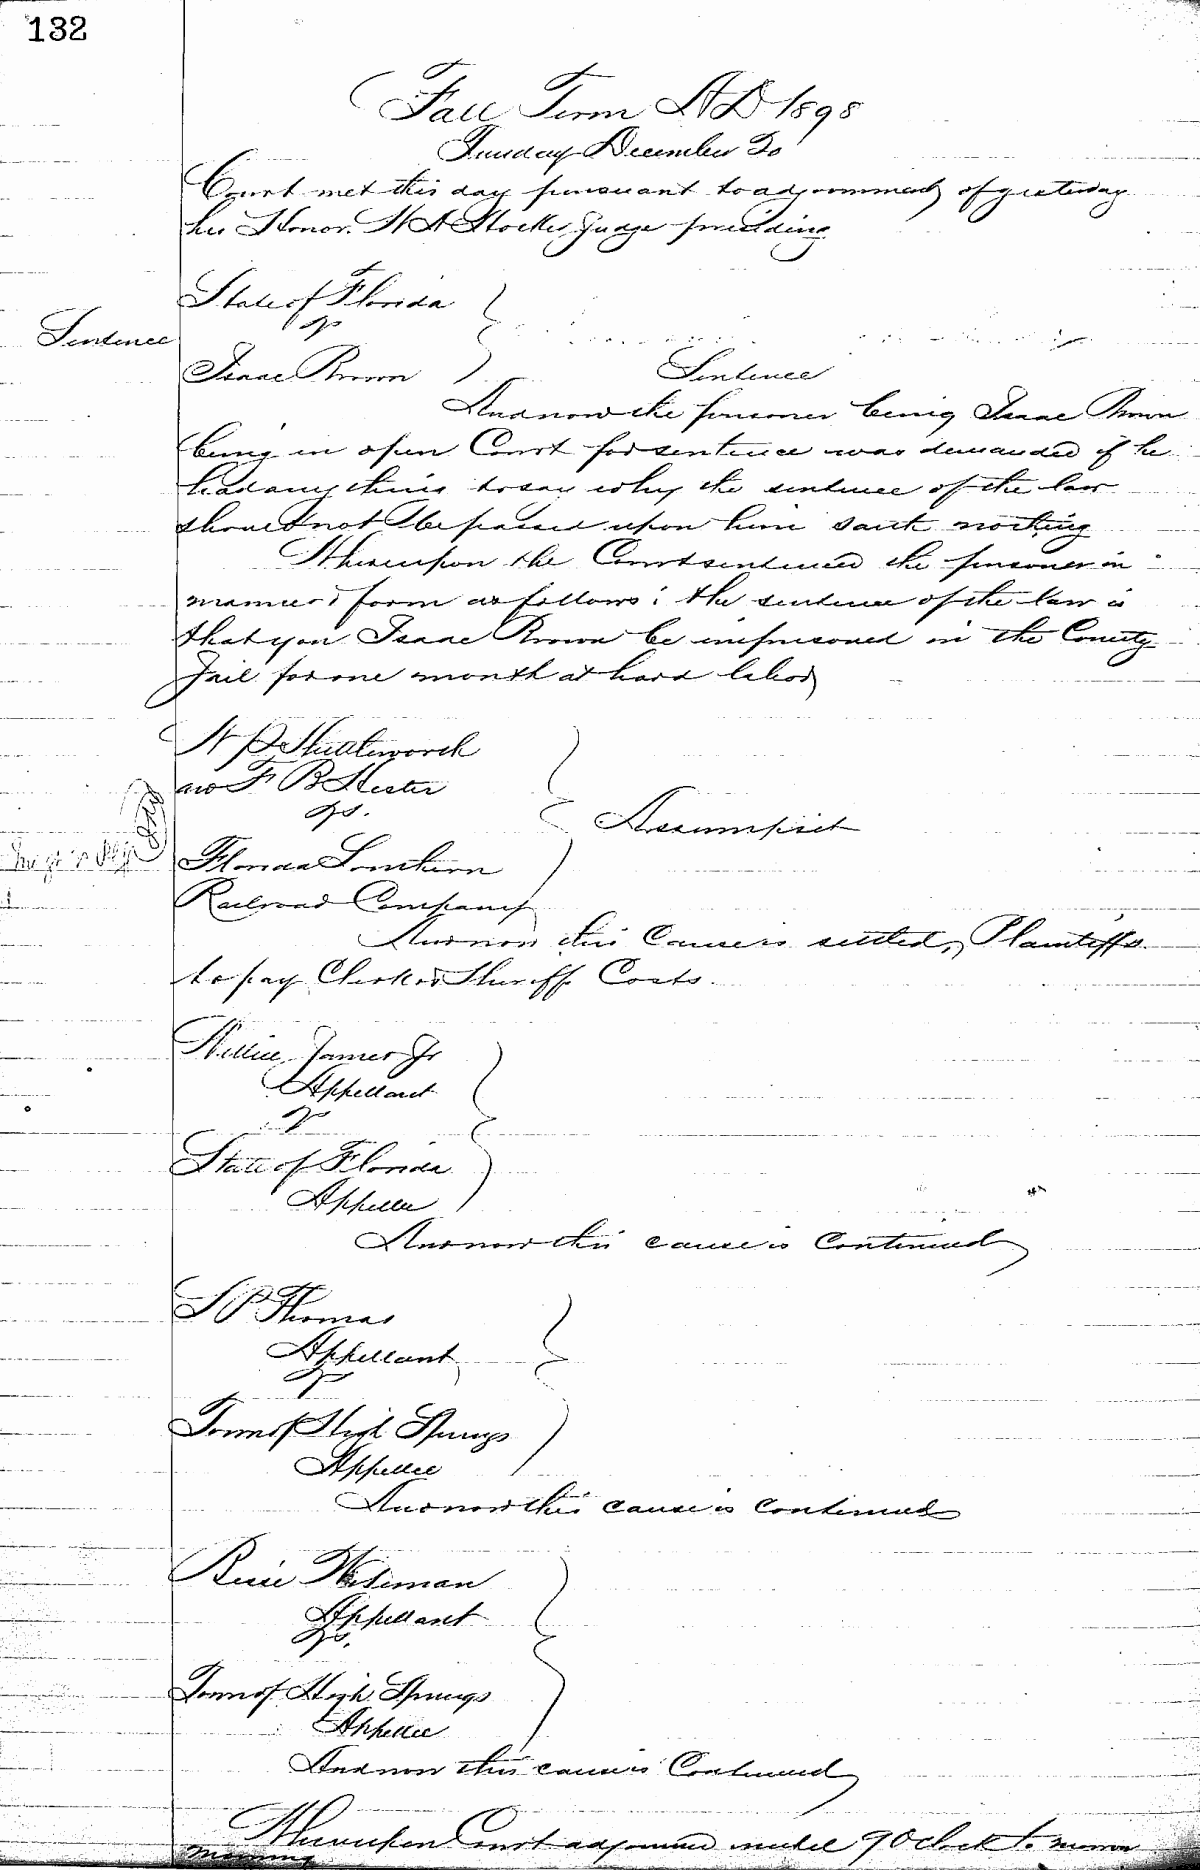 132
Fall Term AD 1898
Tuesday December 20
Court met this day pursuant to adjournment of yesterday
his Honor. W A Hocker Judge presiding
State of Florida
vs
Sentence
Isaac Brown
Sentence
And now the prisoner being Isaac Brown
being in open Court for sentence was demanded if he
had any thing to say why the sentence of the law
should not be passed upon him saith nothing
Whereupon the Court sentenced the prisoner in
manner & form as follows: the sentence of the law is
that you Isaac Brown be imprisoned in the County
Jail for one month at hard labor
W P Shuttleworth
and F B Hester
vs.
Assumpsit
Florida Southern
Railroad Company
And now this Cause is settled, Plaintiffs
to pay Clerk & Sheriff Costs.
Willie James Jr
Appellant
vs
State of Florida
Appellee
And now this cause is Continued
S P Thomas
Appellant
vs
Town of High Springs
Appellee
And now this cause is Continued
Wiseman
Appellant
vs.
Town of High Springs
Appellee
And now this cause is Continued
Whereupon Court adjourned until 9 O clock to morrow
morning